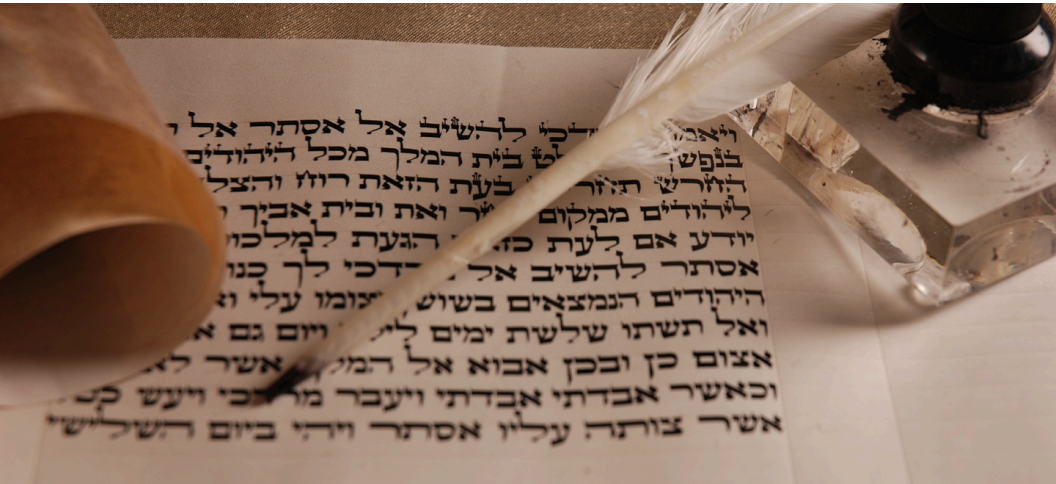 להשיב אל אסתר אל
בנפשך בית המלך מכל היהודים
החרש בעת הזאת רוח
ליהודים ממקום ואת ובית אביך
יודע אם לעת הגעת
אסתר להשיב אל לך
היהודים הנמצאים עלי
ואל תשתו שלשת ימים ויום גם
אצום כן ובכן אבוא אל אשר
וכאשר אבדתי אבדתי ויעבר ויעש
אשר צותה עליו אסתר ויהי ביום השלישי